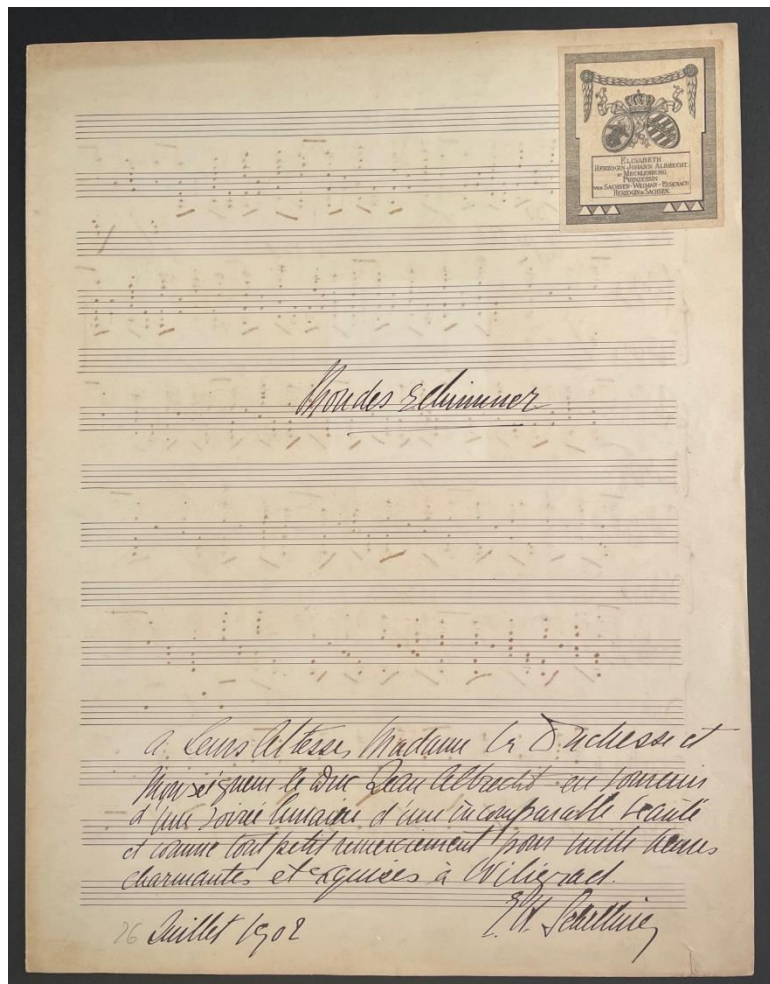 ELISABETH
HERZOGIN JOHANN ALBRECHT
ZU MECKLENBURG
PRINZESSIN
VON SACHSEN-WEIMAR-EISENACH
HERZOGIN ZU SACHSEN
Mondes Schimmer
a Leurs Altesses, Madame la Duchesse et
Monseigneur le Duc Jean Albrecht en souvenir
d'une soirée lunaire d'une incomparable beauté
et comme tout petit remerciement pour mille heures
charmantes et exquises à Wiligrad.
E. H. Schelling
26 Juillet 1902